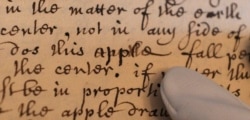 in the matter of the earth
center, not in any side of
dos this apple fall pe
the center. if er
st be in proporti
the apple dra